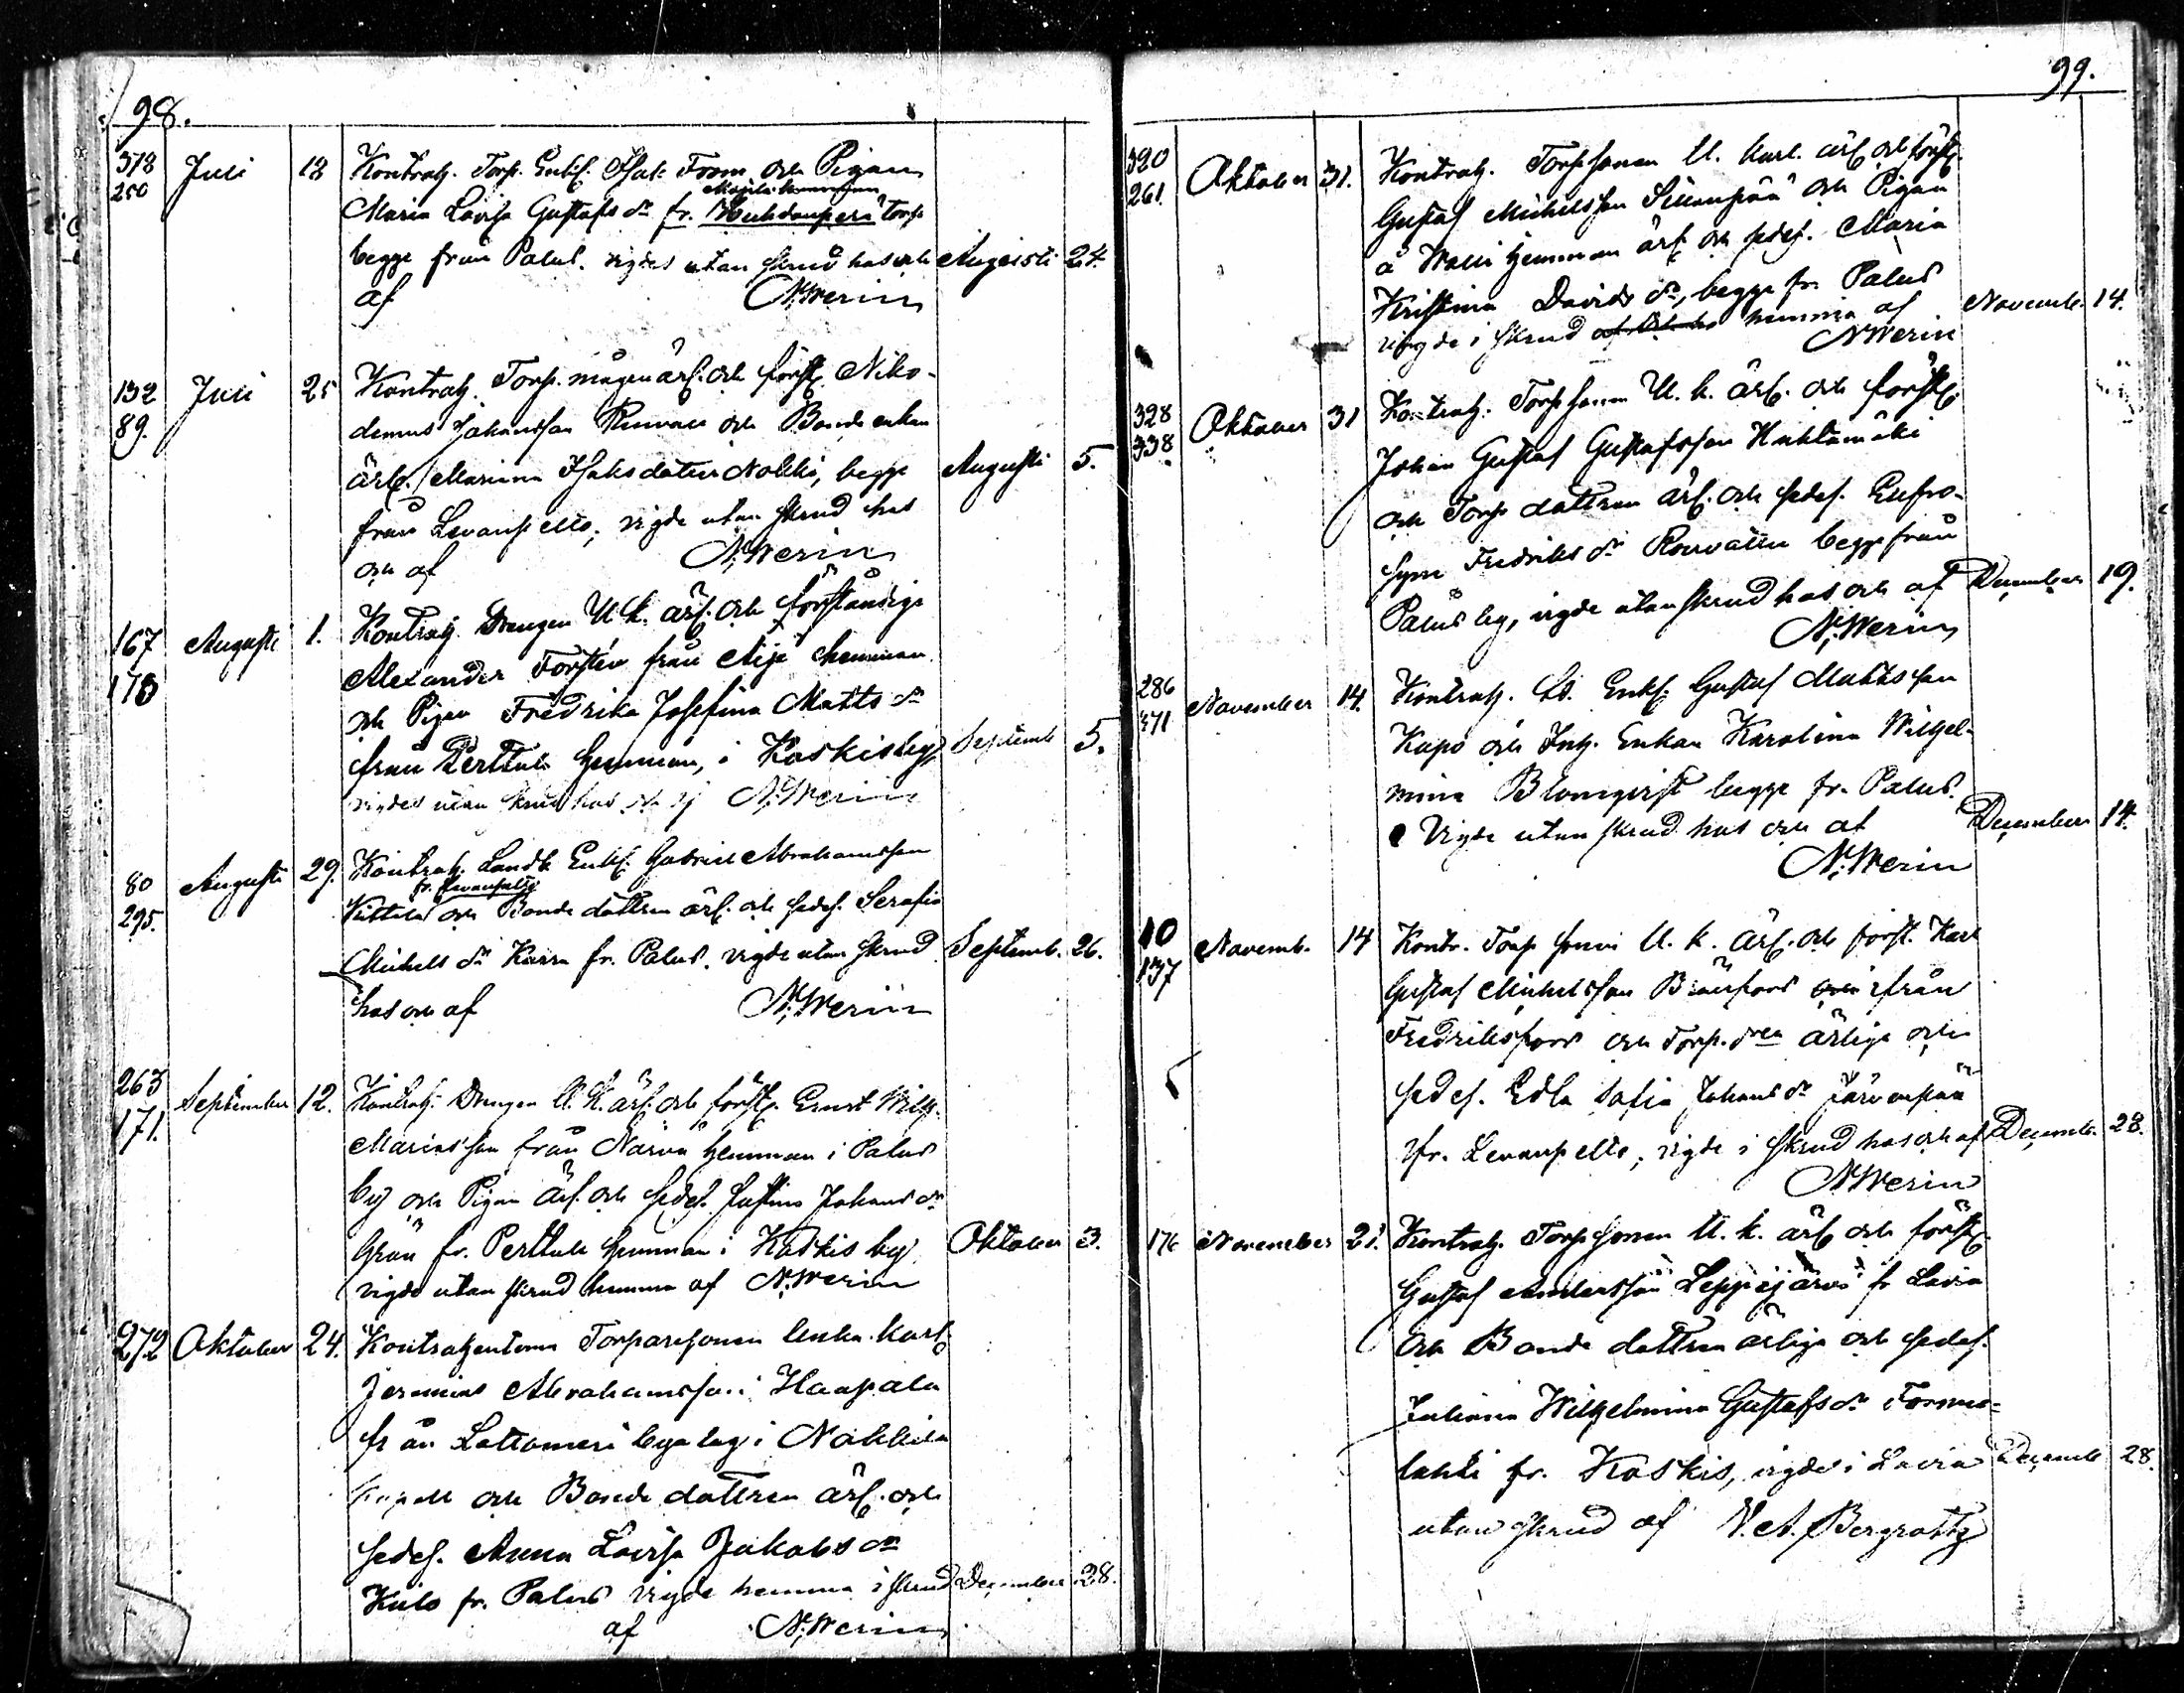 98.
318 Juli 18 Kontrah. Torp. Enkl. Isak Form och Pigan
250 Maria Lovisa Gustafs dr fr. torp
begge från Palus. vigdes utan skrud hos och Augusti 24.
af N. Werin
132 Juli 25 Kontrah. Torp. mågen ärl. och först. Niko-
89. demus Johansson och Bonde enkan
ärl. Mariana Isaks dotter Nokki, begge Augusti 5.
från Levanpelto; vigde utan skrud hos
och af N. Werin
167 Augusti 1. Kontrah. Drengen U. k. ärl. och förståndige
178 Alexander Forstén från Äijä hemman
och Pigan Fredrika Josefina Matts dr
från Perttula hemman, i Kaskis by, Septemb 5.
vigdes utan skrud hos N. Werin
80 Augusti 29. Kontrah. Landb. Enkl. Gabriel Abrahamsson
fr. Levanpelto
295. Kittilä och Bonde dottren ärl. och sedes. Serafia
Michels dr fr. Palus. vigde utan skrud Septemb. 26.
hos och af N. Werin
263 September 12. Kontrah. Drengen U. K. ärl. och först. Ernst Wilh.
171. från Närvä hemman i Palus
by och Pigan ärl. och sedes. Justina Johans dr
Grön fr. Perttula hemman i Kaskis by Oktober 3.
vigde utan skrud hemma af N. Werin
272 Oktober 24. Kontrahenterna Torparesonen unka. karl.
Jeremias Abrahamsson Haapala
från Lattomeri byalag i Nakkila
kapell och Bonde dottren ärl. och
sedes. Anna Lovisa Jakobs dr
Kulo fr. Palus vigde hemma i skrud December 28.
af N. Werin
99.
320 Oktober 31. Kontrah. Torpsonen U. karl. ärl. och först.
261. Gustaf Michelsson Sillanpää och Pigan
å hemman ärl. och sedes. Maria
Kristina Davids dr, begge fr. Palus
vigde i skrud hemma af Novemb. 14.
N Werin
328 Oktober 31 Kontrah. Torpsonen U. k. ärl. och förstl.
338 Johan Gustaf Gustafsson Huhtamäki
och Torp dottren ärl. och sedes. Eufro-
syne Fredriks dr begge från
Palus by, vigde utan skrud hos och af December 19.
N. Werin
286 November 14. Kontrah. Enkl. Gustaf Mattsson
371 och Inh. Enkan Karolina Wilhel-
mina Blomqvist begge fr. Palus.
Vigde utan skrud hos och af December 14.
N. Werin
10 Novemb. 14 Kontr. Torp sonen U. k. ärl. och först. Karl
137 Gustaf Michelsson från
Fredriksfors och Torp. dren ärliga och
sedes. Edla Sofia Johans dr Järvenpää
fr. Levanpelto; vigde i skrud hos och af Decemb. 28.
N Werin
176 November 21. Kontrah. Torpsonen U. k. ärl och först.
Gustaf Andersson Leppäjärvi fr Lavia
och Bonde dottren ärliga och sedes.
Juliana Wilhelmina Gustafs dr Formu-
lahti fr. Kaskis, vigde i Lavia Decemb 28.
utan skrud af N. A. Bergroth